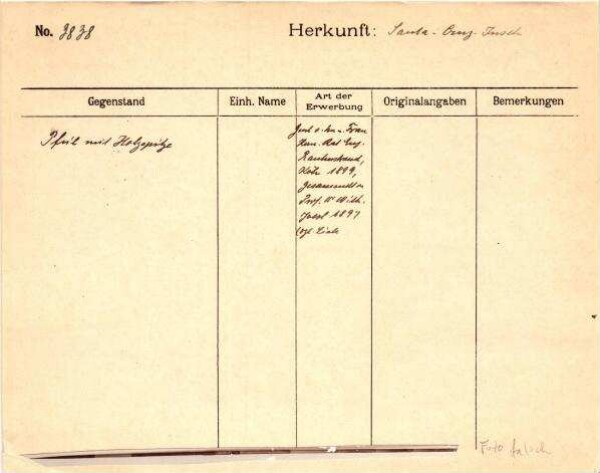 No. 3838
Herkunft: Santa-Cruz-Inseln
Gegenstand
Einh. Name
Art der
Erwerbung
Originalangaben
Bemerkungen
Pfeil mit Holzspitze
u. Frau
Rautenstrauch,
Köln 1899,
gesammelt v.
Prof. Dr Wilh.
Joest 1897
Foto falsch